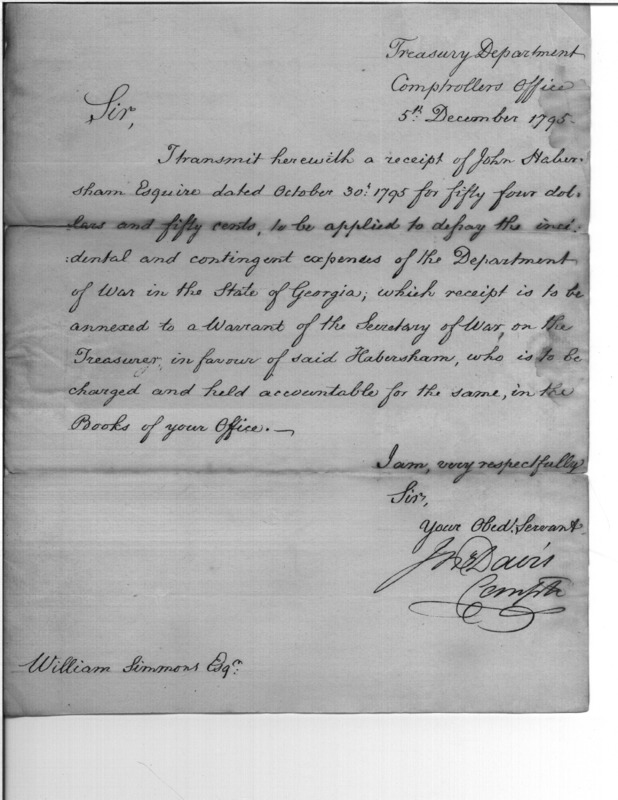 Treasury Department
Comptrollers Office
5th. December 1795.
Sir,
I transmit herewith a receipt of John Haber-
sham Esquire dated October 30t. 1795 for fifty four dol-
lars and fifty cents, to be applied to defray the inci:
:dental and contingent expenses of the Department
of War in the State of Georgia; which receipt is to be
annexed to a Warrant of the Secretary of War, on the
Treasurer, in favour of said Habersham, who is to be
charged and held accountable for the same, in the
Books of your Office.—
I am, very respectfully
Sir,
Your Obedt. Servant
Jno Davis
Comptr
William Simmons Esqr.